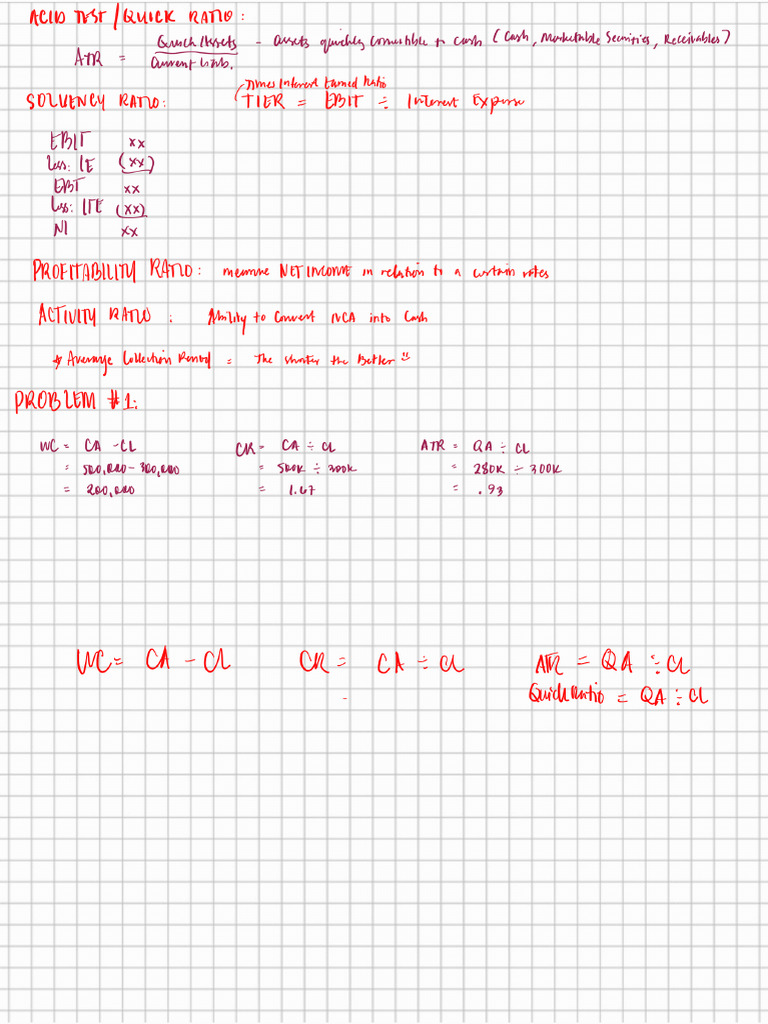 ACID TEST / QUICK RATIO :
ATR = Quick Assets / Current Liab. - Assets quickly convertible to cash (Cash, Marketable Securities, Receivables)
Times Interest Earned Ratio
SOLVENCY RATIO: TIER = EBIT ÷ Interest Expense
EBIT xx
Less: IE (xx)
EBT xx
Less: ITE (xx)
NI xx
PROFITABILITY RATIO: measure NET INCOME in relation to a certain rates
ACTIVITY RATIO : Ability to Convert NCA into Cash
* Average Collection Period = The shorter the Better
PROBLEM #1:
WC = CA - CL CR = CA ÷ CL ATR = QA ÷ CL
= 500,000 - 300,000 = 500K ÷ 300K = 280K ÷ 300K
= 200,000 = 1.67 = .93
WC = CA - CL CR = CA ÷ CL ATR = QA ÷ CL
Quick Ratio = QA ÷ CL